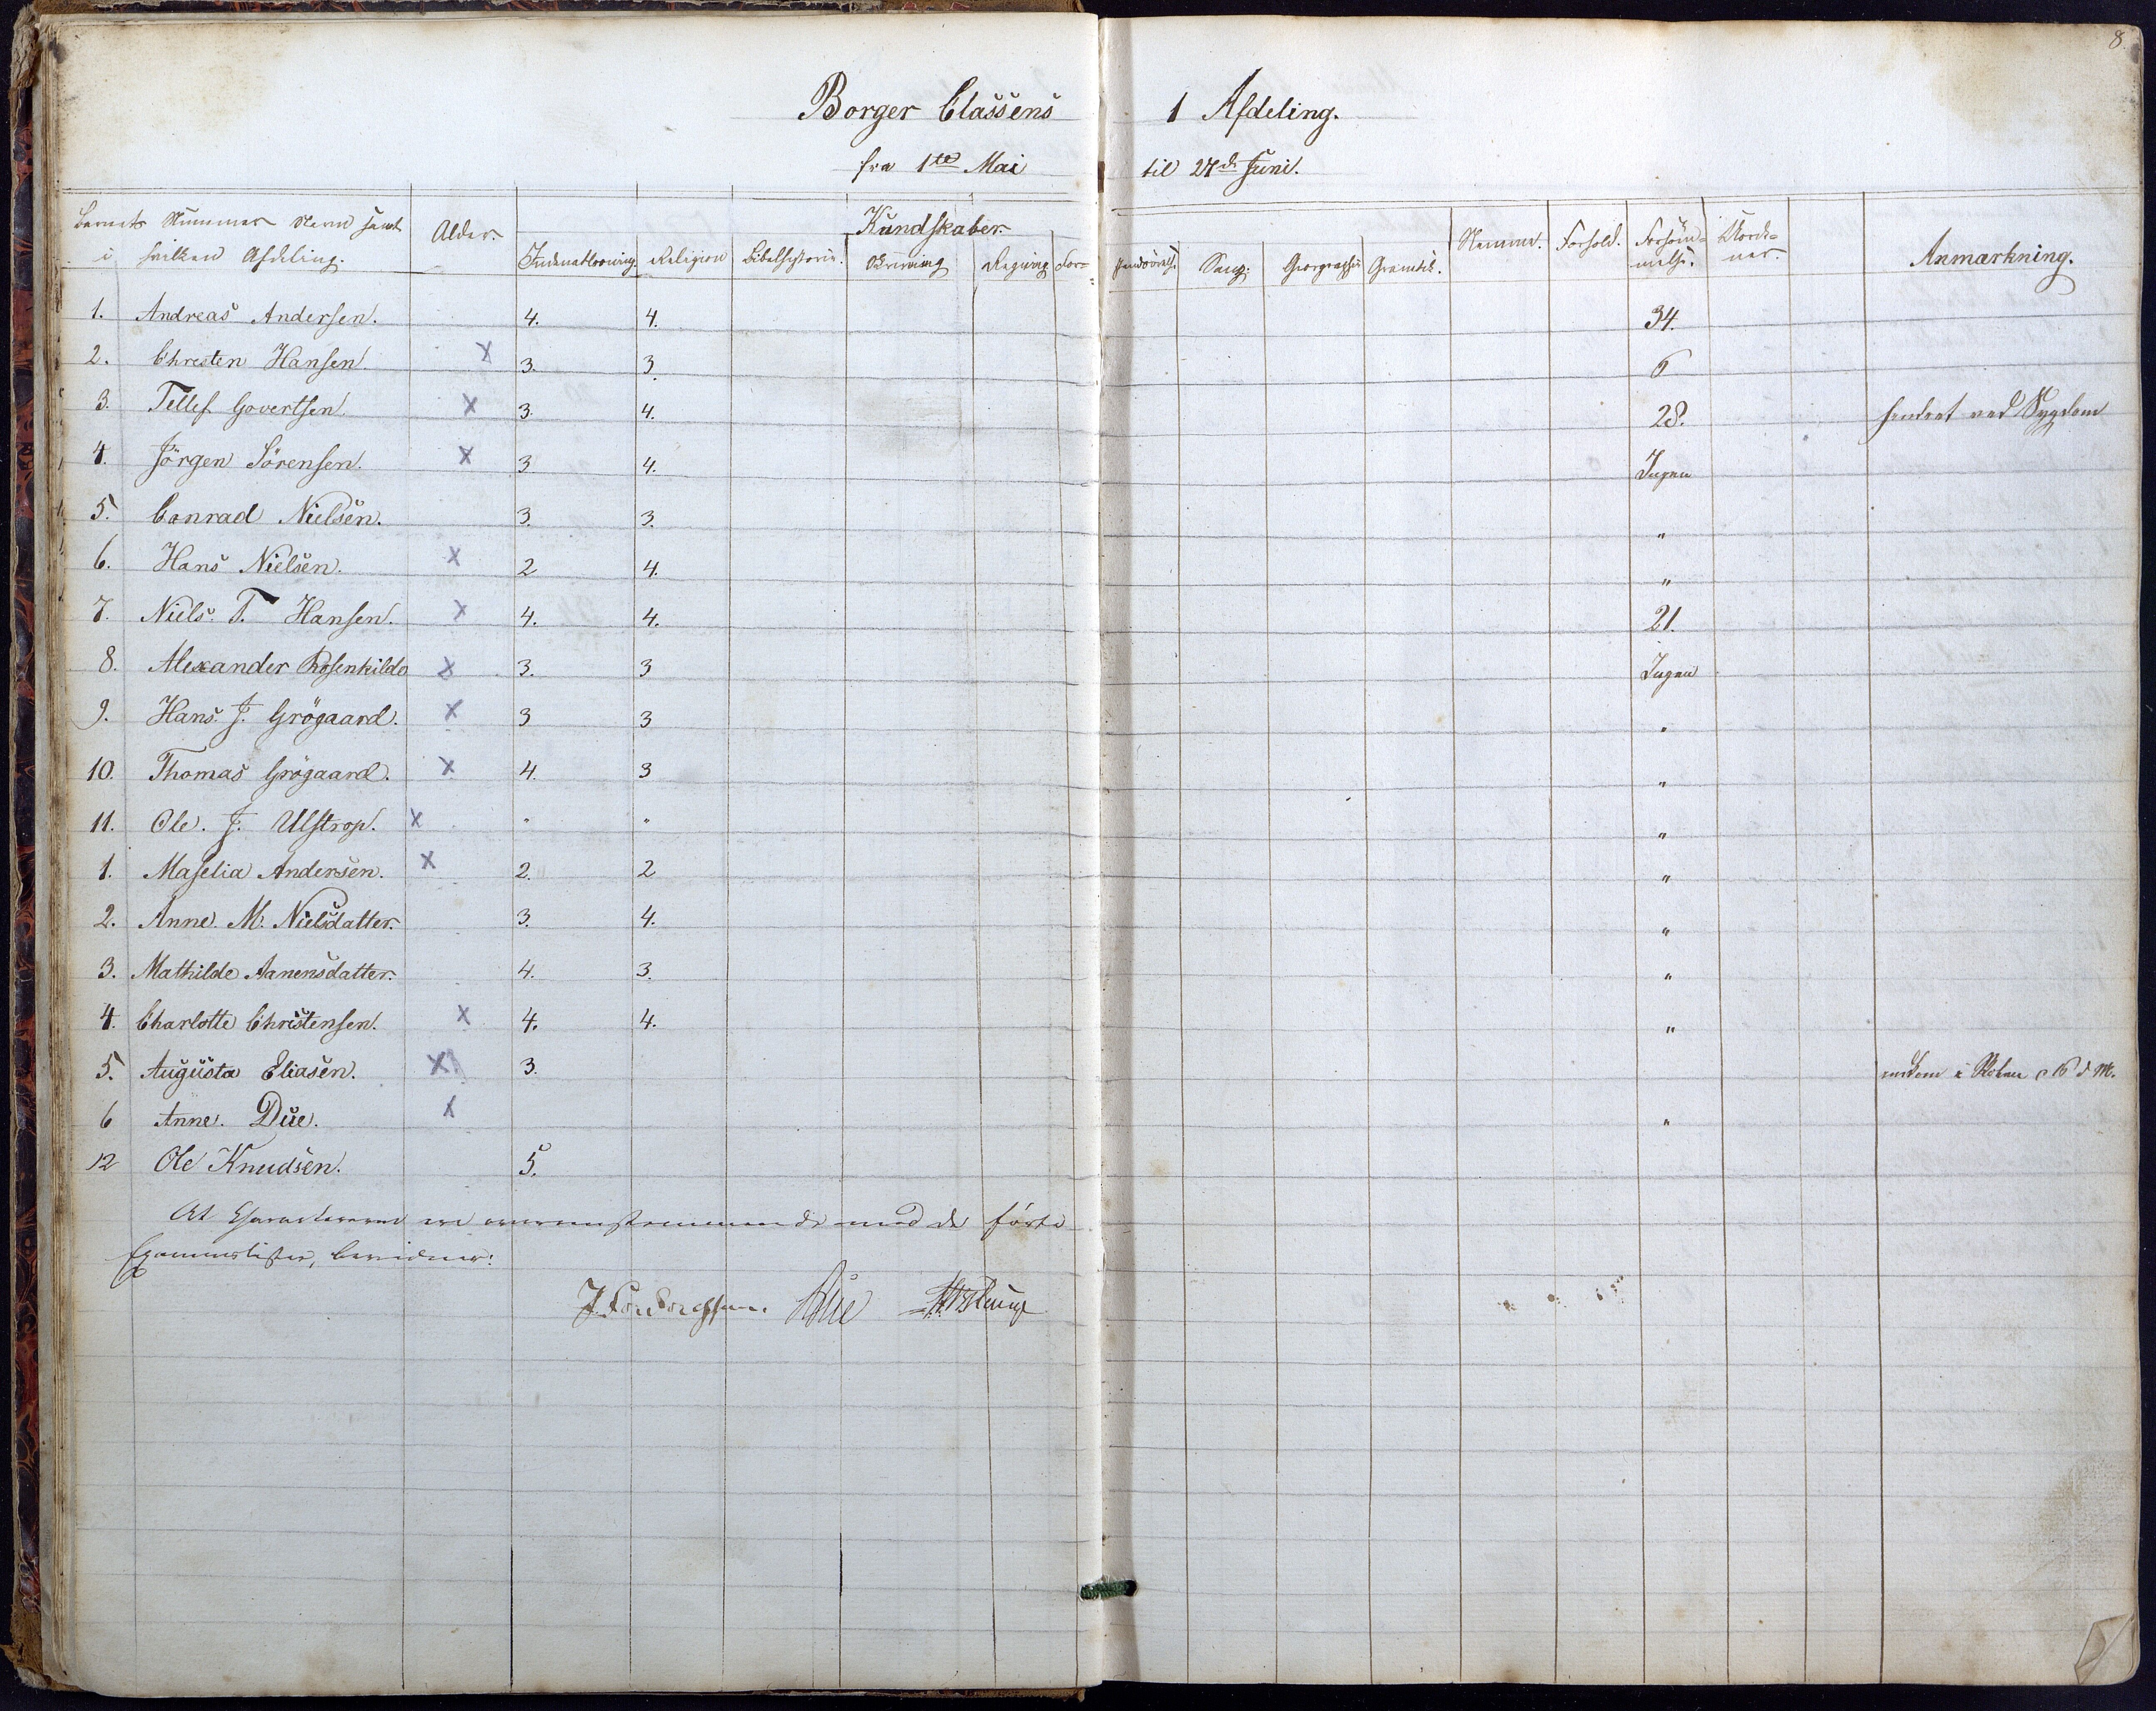 8.
Borger Classens 1 Afdeling.
fra 1te Mai til 27de Juni.
Barnets Nummer Navn samt i hvilken Afdeling. Alder. Kundskaber. Indenadlæsning Religion Bibelhistorie. Skrivning Regning Sang. Geographie Gramatik. Nemme. Forhold. Forsömmelse. Anmærkning.
1. Andreas Andersen. 4. 4. 34.
2. Chresten Hansen. X 3. 3. 6
3. Tellef Govertsen. X 3. 4. 28. hindret ved Sygdom
4. Jörgen Sörensen. X 3. 4. Ingen
5. Conrad Nielsen. 3. 3. "
6. Hans Nielsen. X 2 4. "
7. Niels. T. Hansen. X 4. 4. 21.
8. Alexander Rosenkilde X 3. 3 Ingen
9. Hans. J. Grögaard. X 3 3 "
10. Thomas Grögaard. X 4. 3 "
11. Ole. J. Ulstrop. X " " "
1. Maselia Andersen. X 2. 2 "
2. Anne. M. Nielsdatter. 3. 4. "
3. Mathilde Aanensdatter. 4. 3. "
4. Charlotte Christensen. X 4. 4. "
5. Augusta Eliasen. X 3. i Skolen 16 d M.
6 Anne. Due. X "
12 Ole Knudsen. 5.
At Characterene ere overensstemmende med de förte
Examenslister, bevidner:
Due